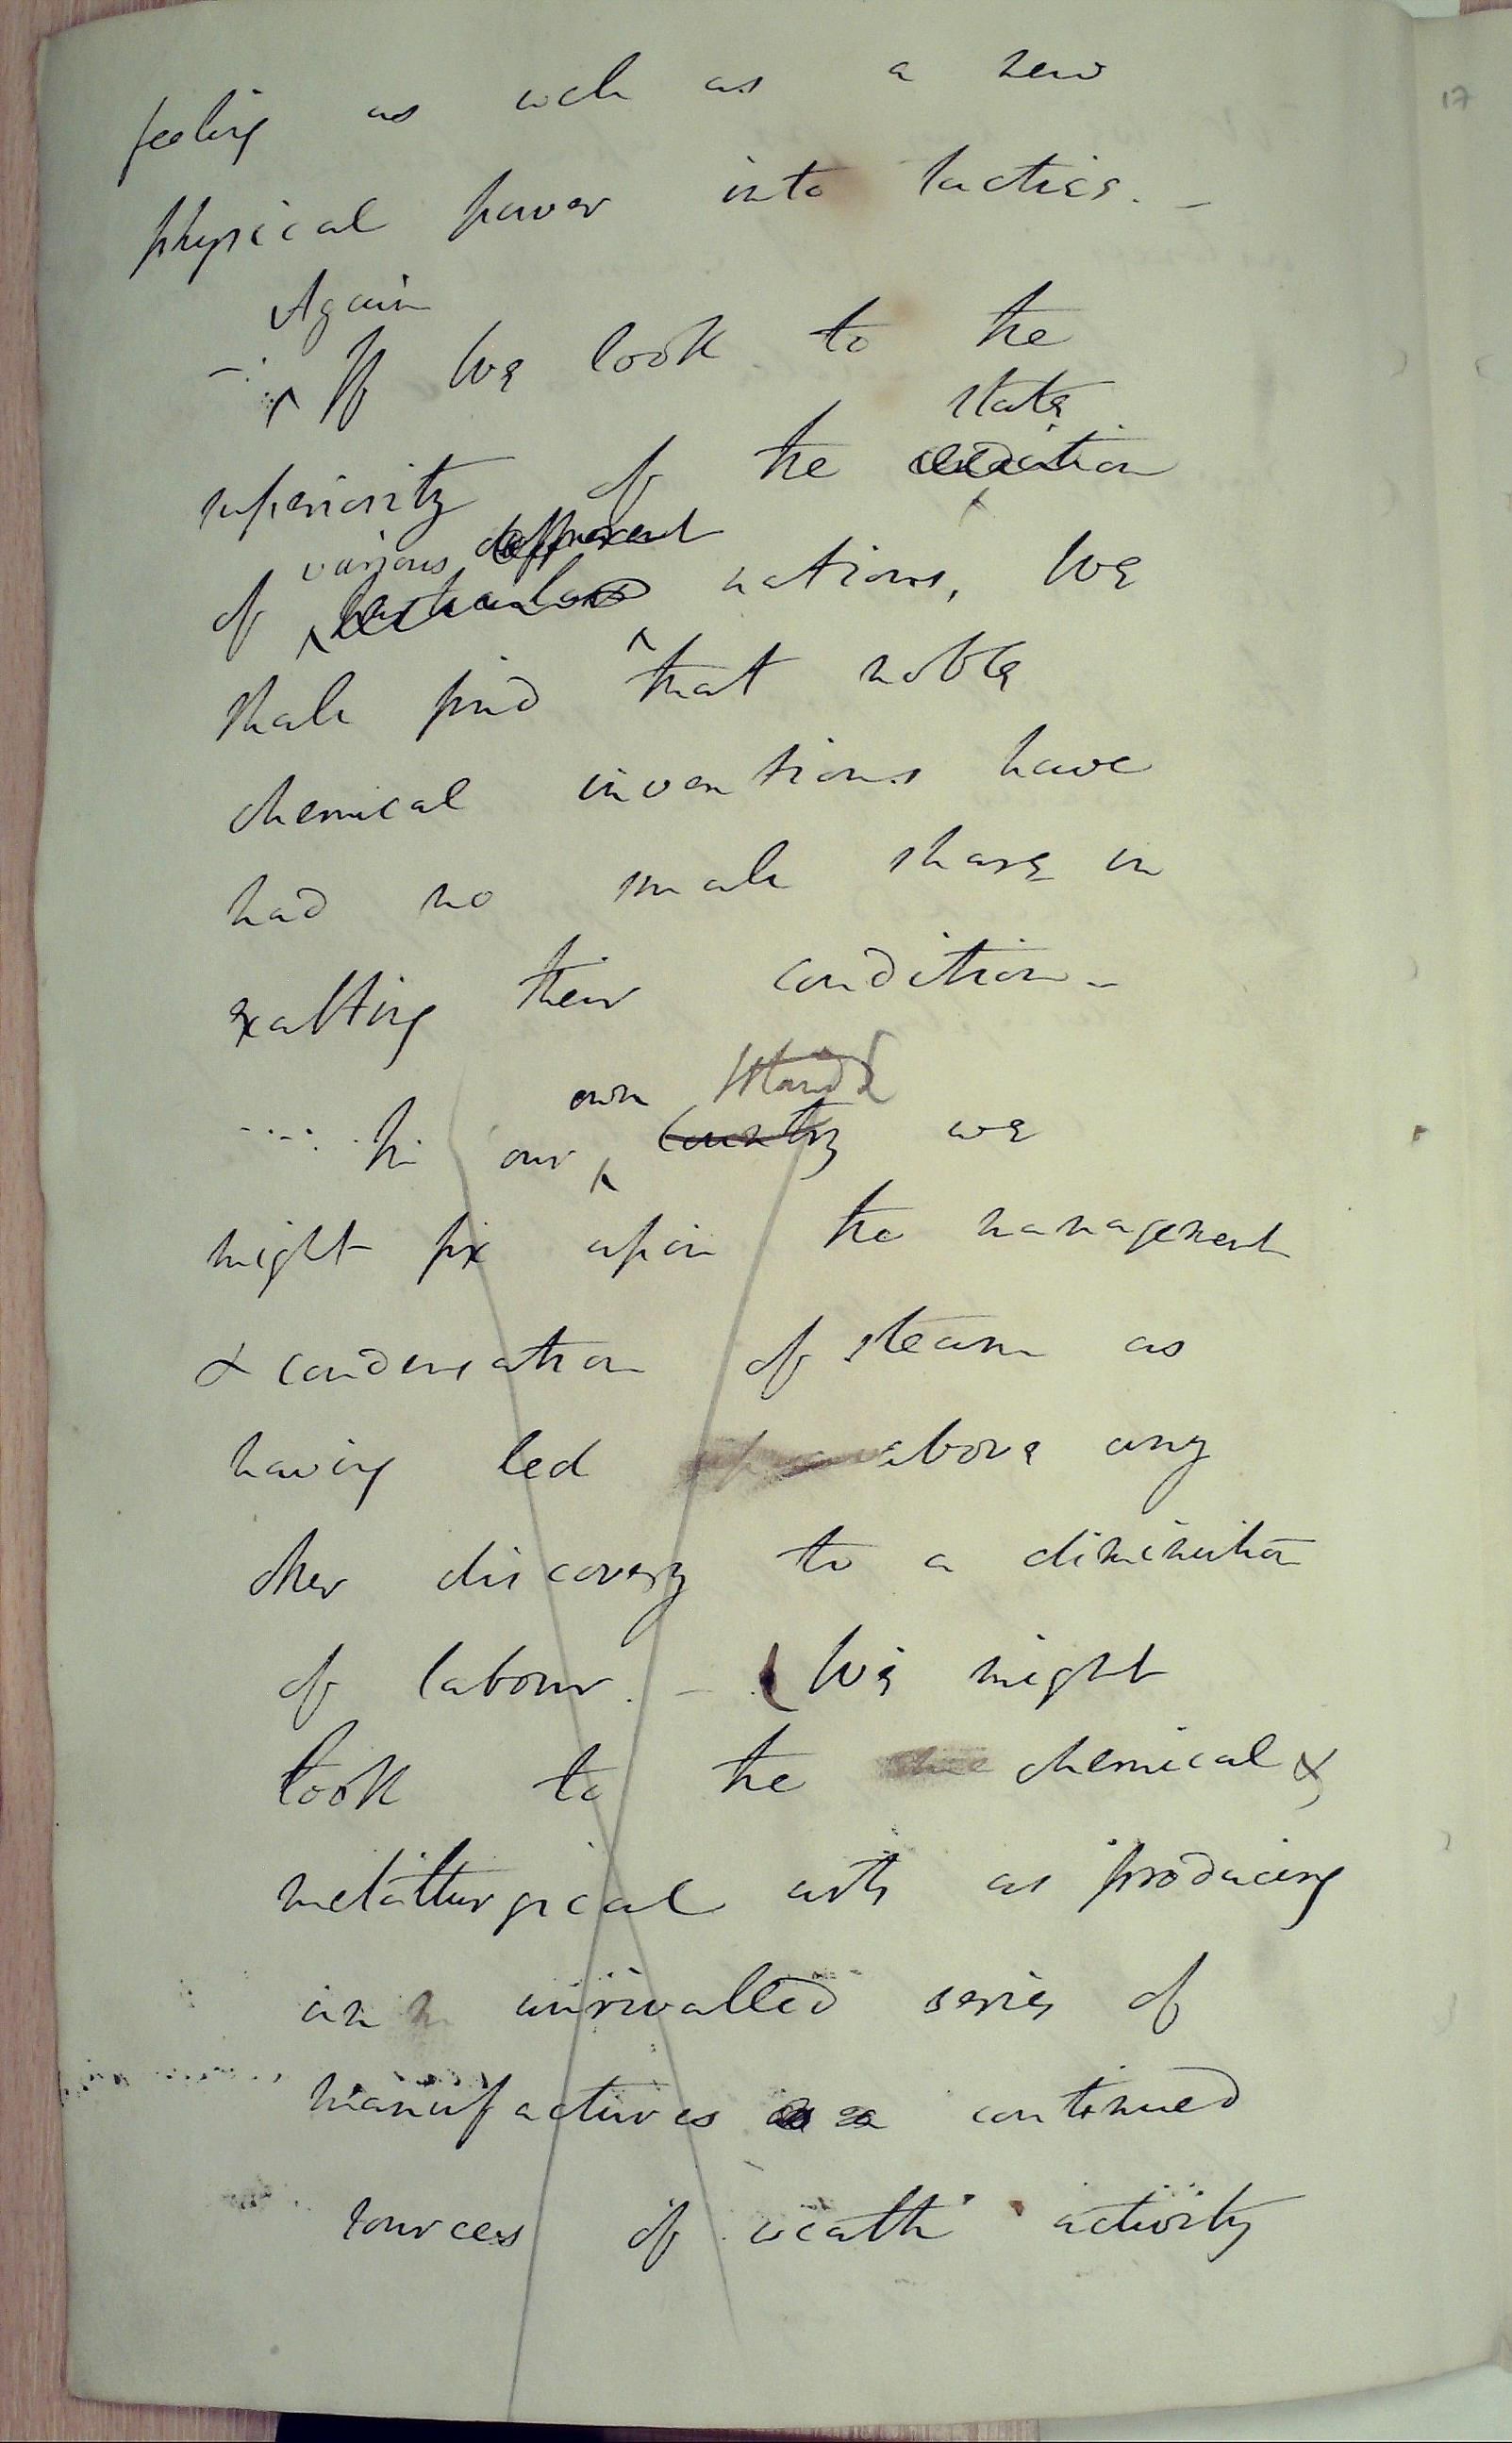 17
feeling as well as a new
physical power into tactics. -
Again
- If We look to the
state
superiority of the condition
various different
of particular nations, We
shall find that noble
chemical inventions have
had no small share in
exalting their condition -
own Island
In our country we
might fix upon the management
& condensation of steam as
having led above any
other discovery to a diminution
of labour. - We might
look to the chemical &
metallurgical arts as producing
an unrivalled series of
manufactures as a continued
sources of wealth activity